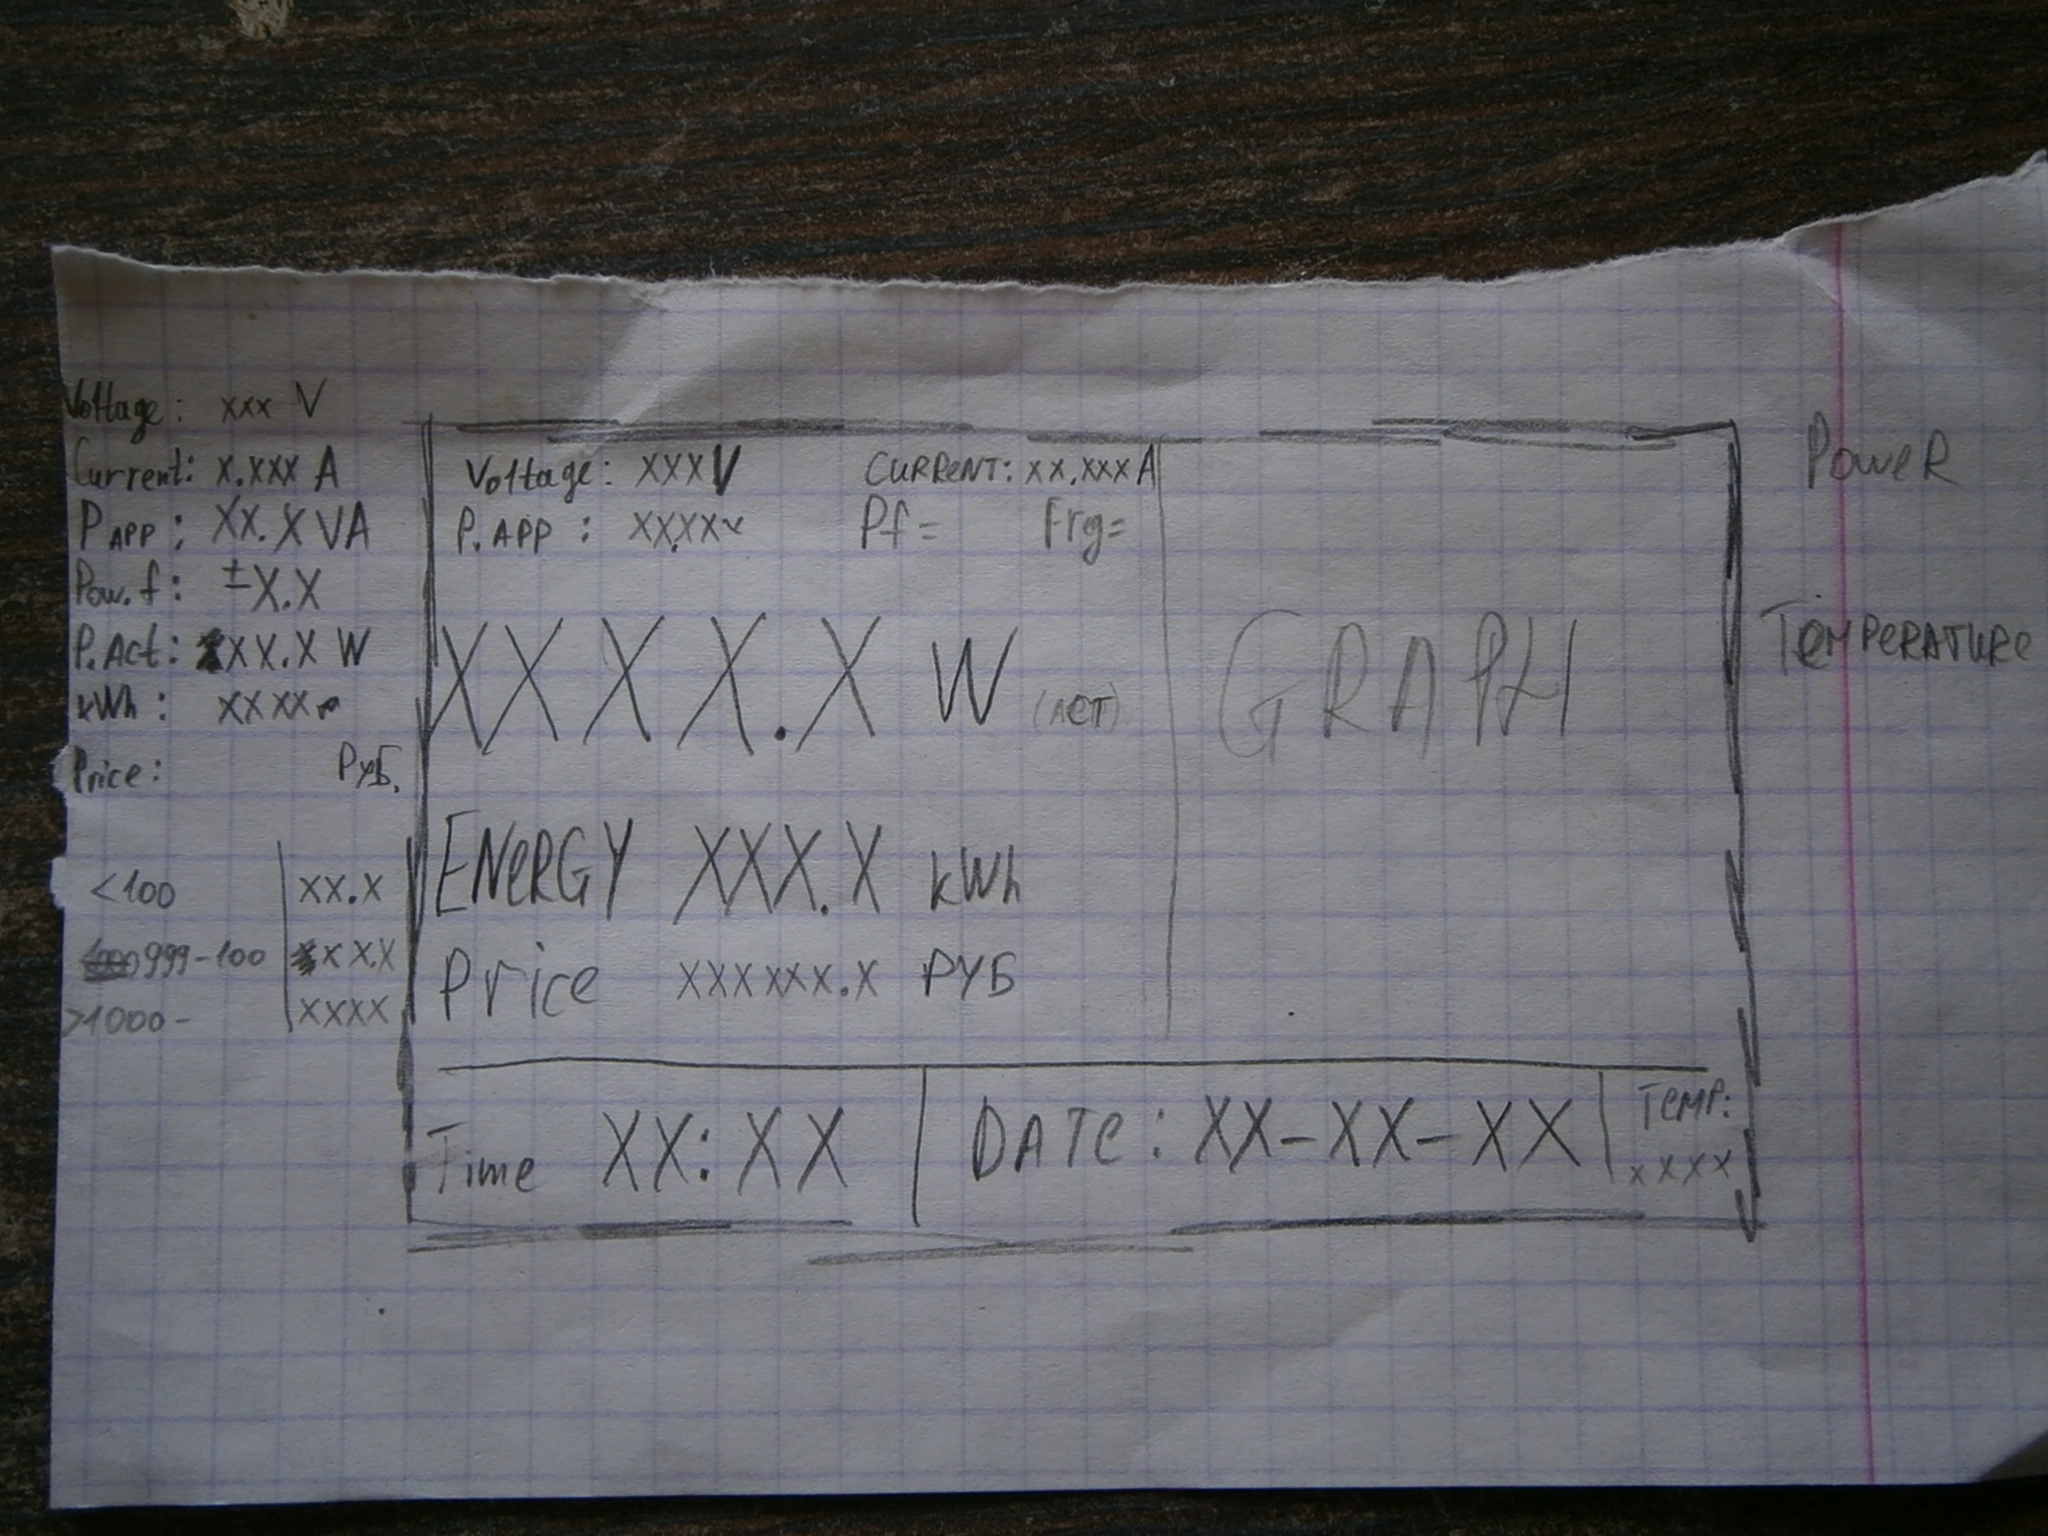 Voltage: xxx V
Current: x.xxx A
P APP: XX.X VA
Pow.f: ±X.X
P.Act: XX.X W
kWh: xxxx
Price: РУБ.
<100 XX.X
999-100 XX.X
>1000- XXXX
Voltage: XXX V CURRENT: XX.XXX A
P.APP: XXXX Pf= Frg=
XXXX.X W (ACT)
GRAPH
ENERGY XXX.X kWh
Price XXXXXX.X РУБ
Time XX:XX DATE: XX-XX-XX TEMP:
XXXX
POWER
TEMPERATURE